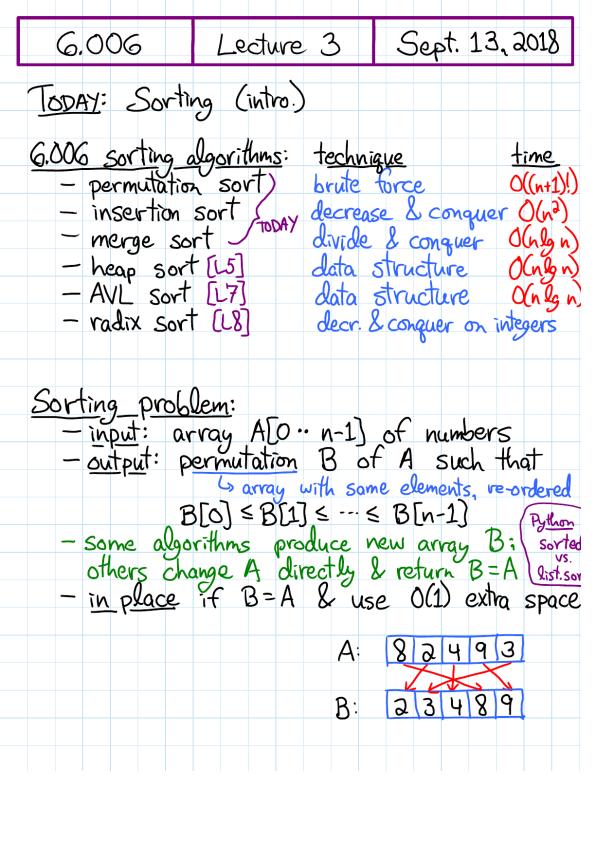 6.006 Lecture 3 Sept. 13, 2018
TODAY: Sorting (intro.)
6.006 sorting algorithms: technique time
– permutation sort brute force O((n+1)!)
– insertion sort decrease & conquer O(n²)
TODAY
– merge sort divide & conquer O(n lg n)
– heap sort [L5] data structure O(n lg n)
– AVL sort [L7] data structure O(n lg n)
– radix sort [L8] decr. & conquer on integers
Sorting problem:
– input: array A[0 ·· n-1] of numbers
– output: permutation B of A such that
↳ array with same elements, re-ordered
B[0] ≤ B[1] ≤ ··· ≤ B[n-1]
– some algorithms produce new array B;
others change A directly & return B = A
Python
sorted
vs.
list.sor
– in place if B = A & use O(1) extra space
A: 8 2 4 9 3
B: 2 3 4 8 9